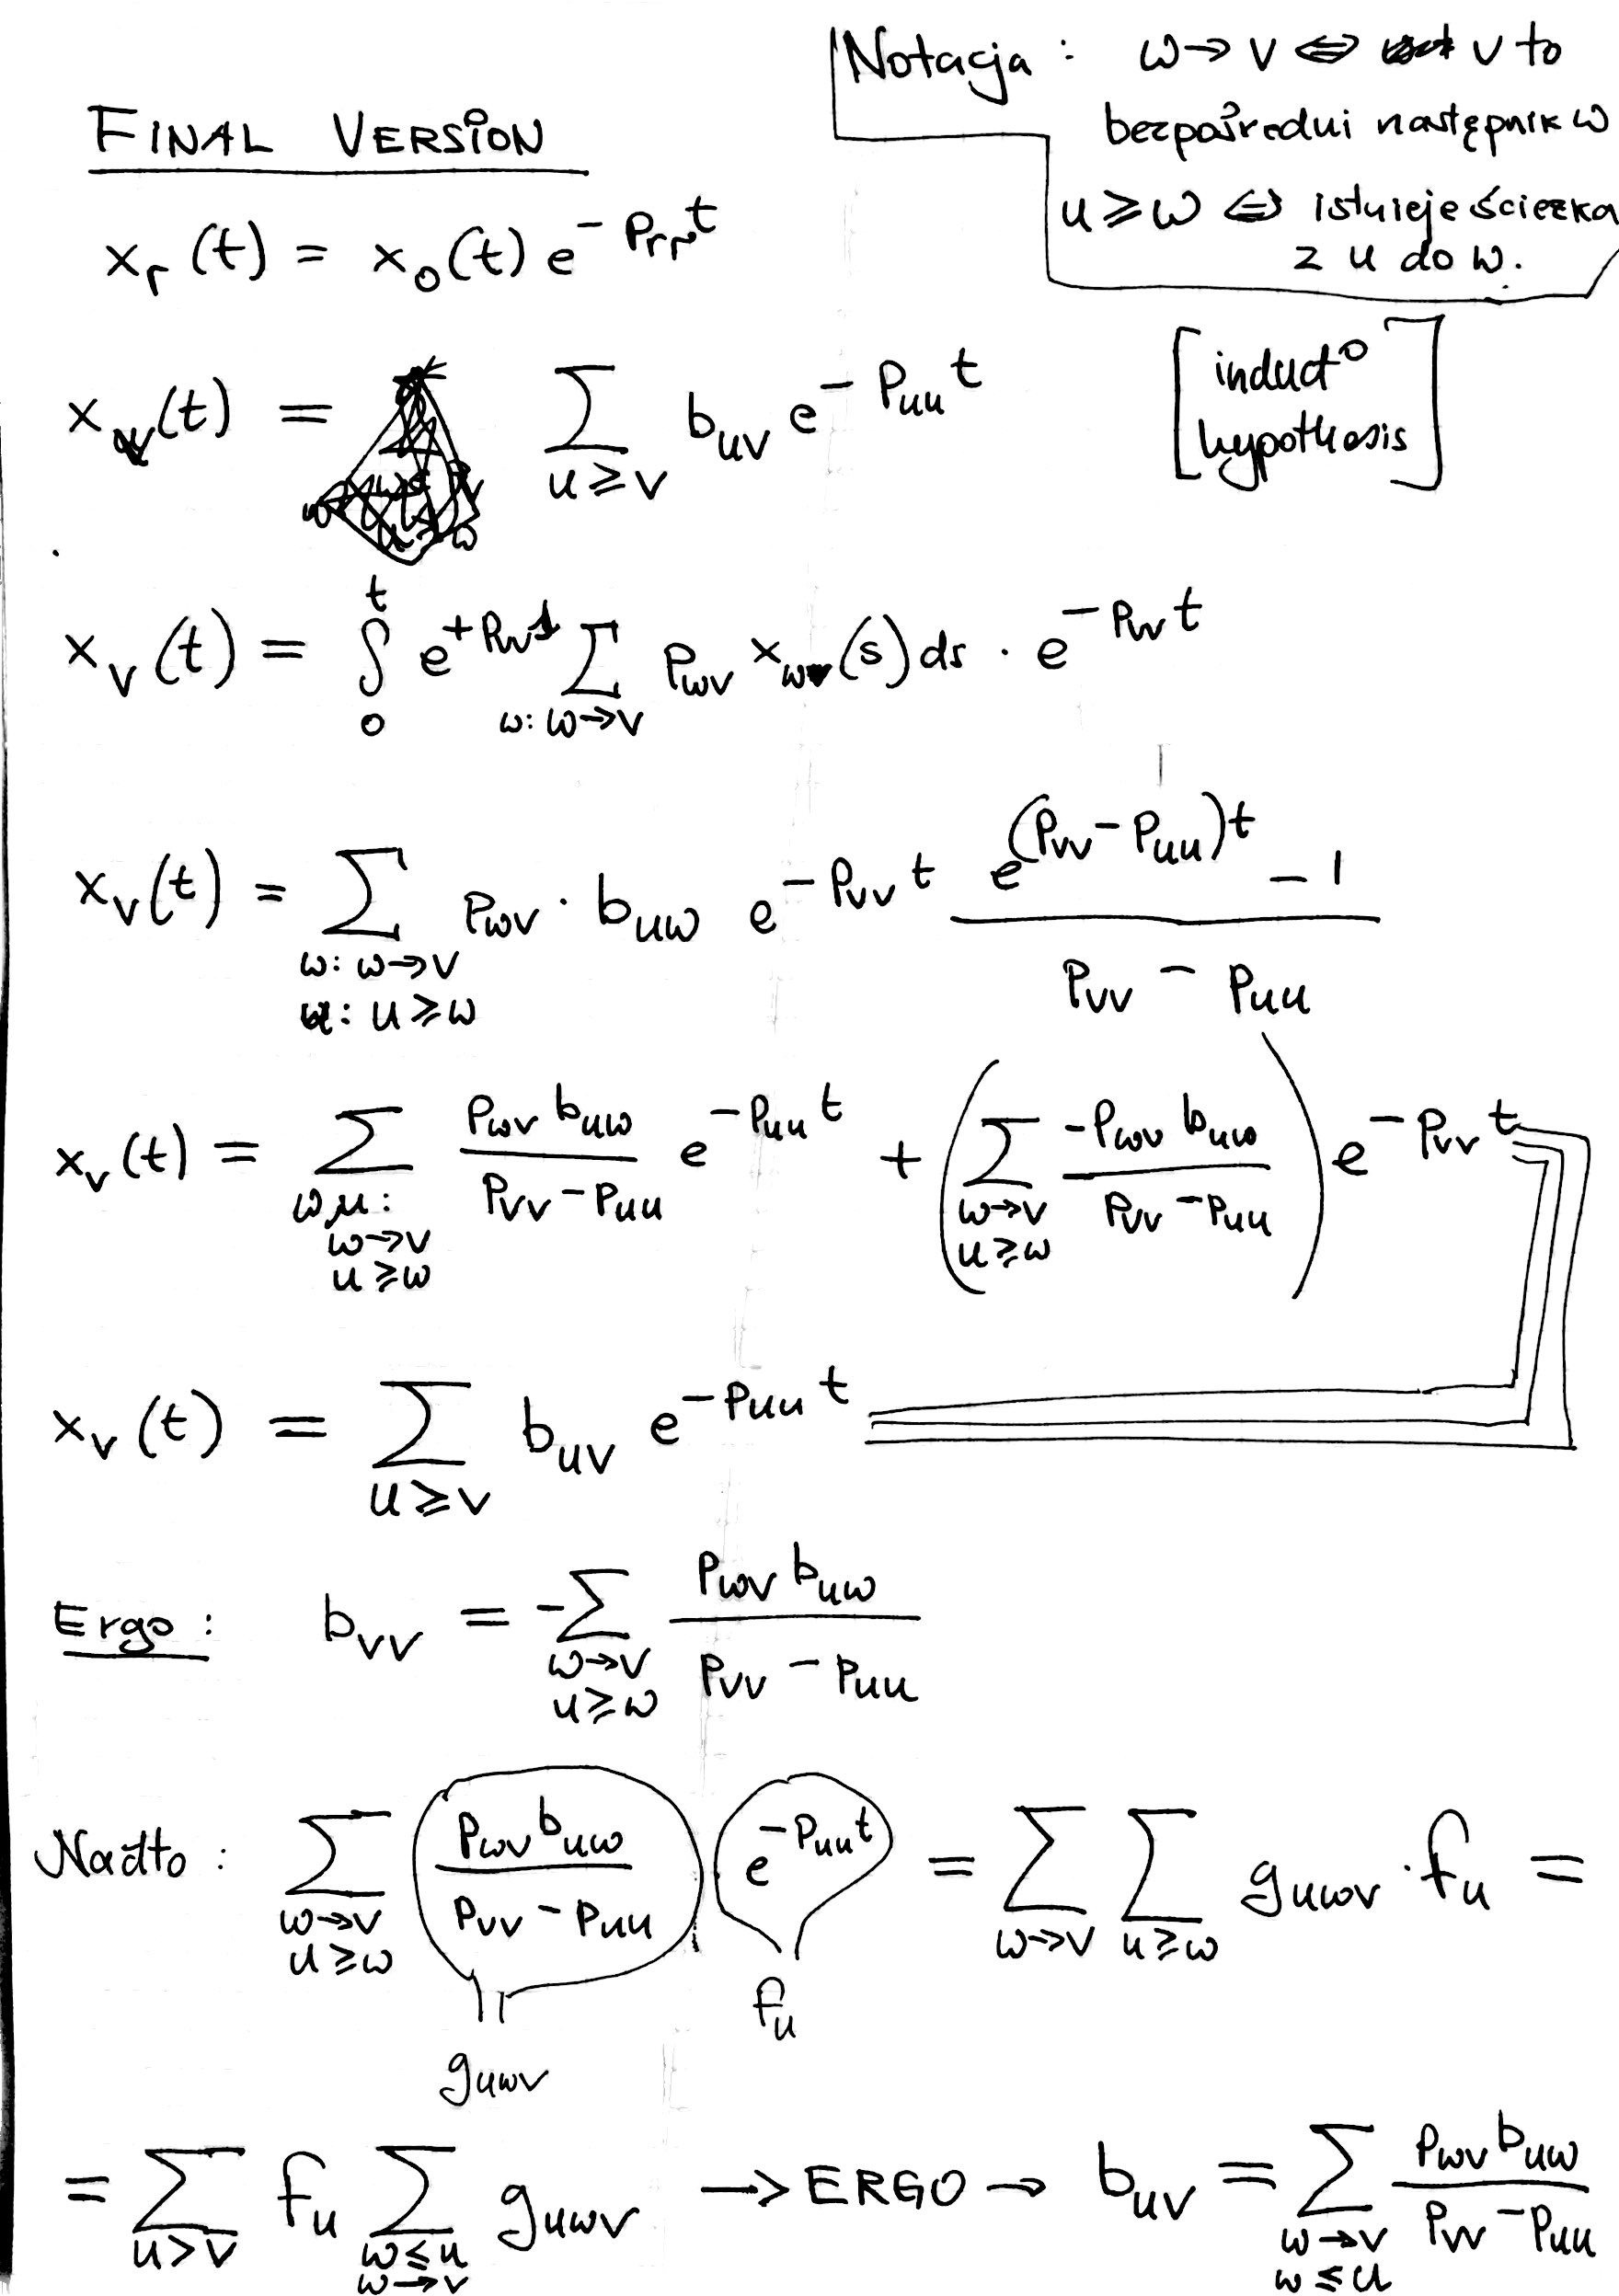 Notacja : ω → v ⇔ v to
bezpośredni następnik ω
u ≥ ω ⇔ istnieje ścieżka
z u do ω.
FINAL VERSION
x_r(t) = x_0(t) e^{-p_{rr}t}
x_v(t) = ∑_{u≥v} b_{uv} e^{-p_{uu}t}
[induct° hypothesis]
x_v(t) = ∫_0^t e^{+p_{vv}s} ∑_{ω: ω→v} p_{ωv} x_ω(s) ds · e^{-p_{vv}t}
x_v(t) = ∑_{ω: ω→v, u: u≥ω} p_{ωv} · b_{uω} e^{-p_{vv}t} \frac{e^{(p_{vv}-p_{uu})t} - 1}{p_{vv} - p_{uu}}
x_v(t) = ∑_{ω,u: ω→v, u≥ω} \frac{p_{ωv} b_{uω}}{p_{vv} - p_{uu}} e^{-p_{uu}t} + (∑_{ω→v, u≥ω} \frac{-p_{ωv} b_{uω}}{p_{vv} - p_{uu}}) e^{-p_{vv}t}
x_v(t) = ∑_{u≥v} b_{uv} e^{-p_{uu}t}
Ergo : b_{vv} = -∑_{ω→v, u≥ω} \frac{p_{ωv} b_{uω}}{p_{vv} - p_{uu}}
Nadto : ∑_{ω→v, u≥ω} \frac{p_{ωv} b_{uω}}{p_{vv} - p_{uu}} e^{-p_{uu}t} = ∑_{ω→v} ∑_{u≥ω} g_{uωv} · f_u =
g_{uωv}
f_u
= ∑_{u>v} f_u ∑_{ω≤u, ω→v} g_{uωv} → ERGO → b_{uv} = ∑_{ω→v, ω≤u} \frac{p_{ωv} b_{uω}}{p_{vv} - p_{uu}}